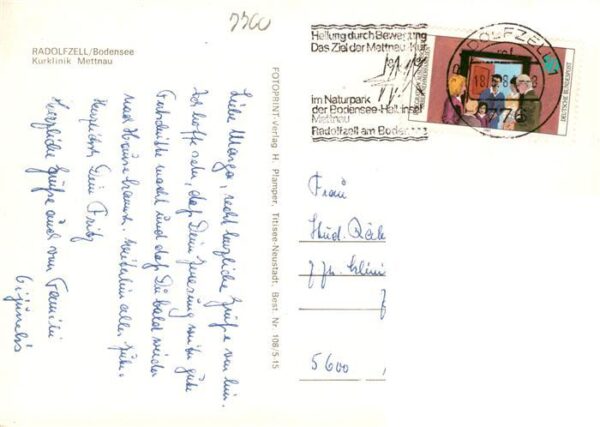 7760
RADOLFZELL/Bodensee
Kurklinik Mettnau
Liebe Marga, recht herzliche Grüße von hier.
Ich hoffe sehr, daß Deine Genesung weiter gute
Fortschritte macht und daß Du bald wieder
nach Hause kannst. Weiterhin alles Gute.
Herzlichst Dein Fritz
Herzliche Grüße auch von Familie
FOTOPRINT-Verlag H. Plamper, Titisee-Neustadt, Best. Nr. 108/5-15
Heilung durch Bewegung
Das Ziel der Mettnau-Kur
im Naturpark
der Bodensee-Halbinsel
Mettnau
Radolfzell am Bodensee
RADOLFZELL 1
18
7760
DEUTSCHE BUNDESPOST
Frau
5600